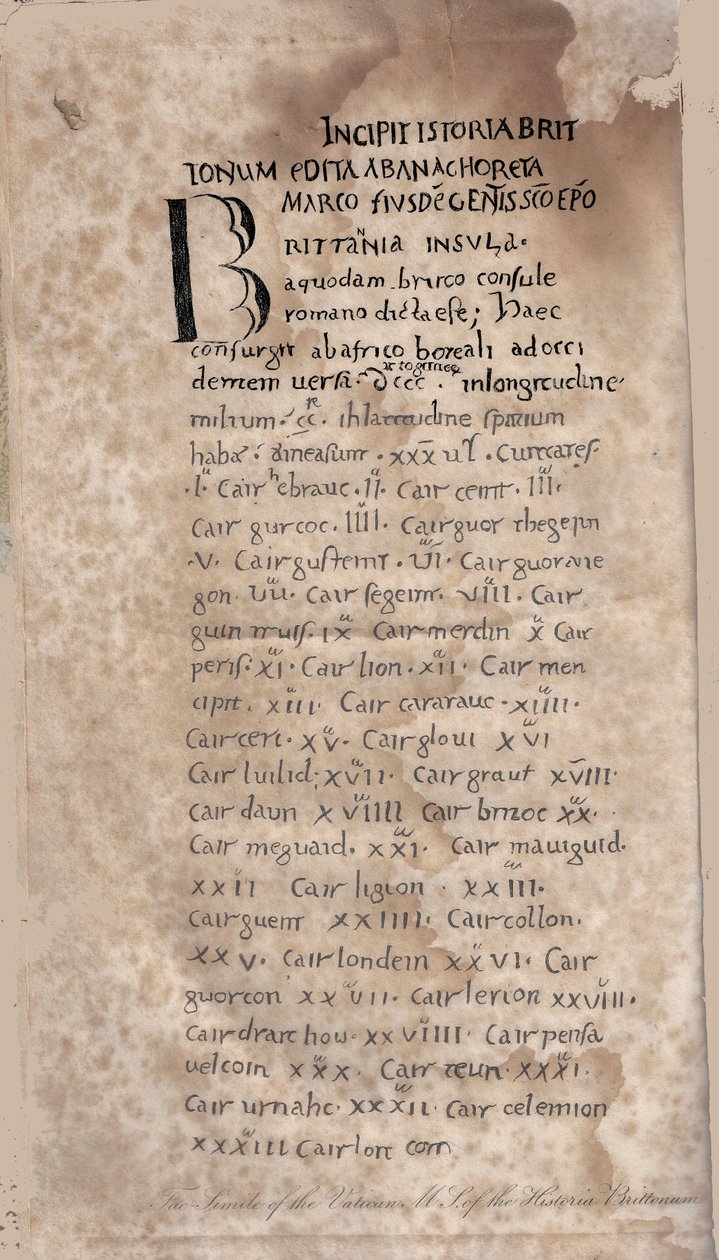 INCIPIT ISTORIA BRIT
TONUM EDITA AB ANACHORETA
MARCO EIUSDĒ GENTIS SCŌ EPŌ
BRITTANNIA INSULA.
a quodam . bruto consule
romano dicta est; Haec
cōnsurgit ab africo boreali ad occi
dentem uersā. dccc . in longitudine
milium . cc. in latitudine spatium
habet
.I. Cair hebrauc . II. Cair ceint . III.
Cair gurcoc . IIII. Cair guorthegern
.V. Cair gusteint . VI. Cair guorane
gon . VII. Cair segeint . VIII. Cair
guin truis . IX Cair merdin X Cair
peris . XI. Cair lion . XII. Cair men
cipit . XIII Cair caratauc . XIIII.
Cair ceri . XV. Cair gloui XVI
Cair luilid; XVII. Cair graut XVIII.
Cair daun XVIIII Cair britoc XX.
Cair meguaid . XXI. Cair mauiguid.
XXII Cair ligion . XXIII.
Cair guent XXIIII. Cair collon.
XXV. Cair londein XXVI. Cair
guorcon XXVII. Cair lerion XXVIII.
Cair draithou . XXVIIII. Cair pensa
uelcoin XXX. Cair teim . XXXI.
Cair urnahc . XXXII. Cair celemion
XXXIII Cair loit coit
Fac-Simile of the Vatican MS. of the Historia Brittonum